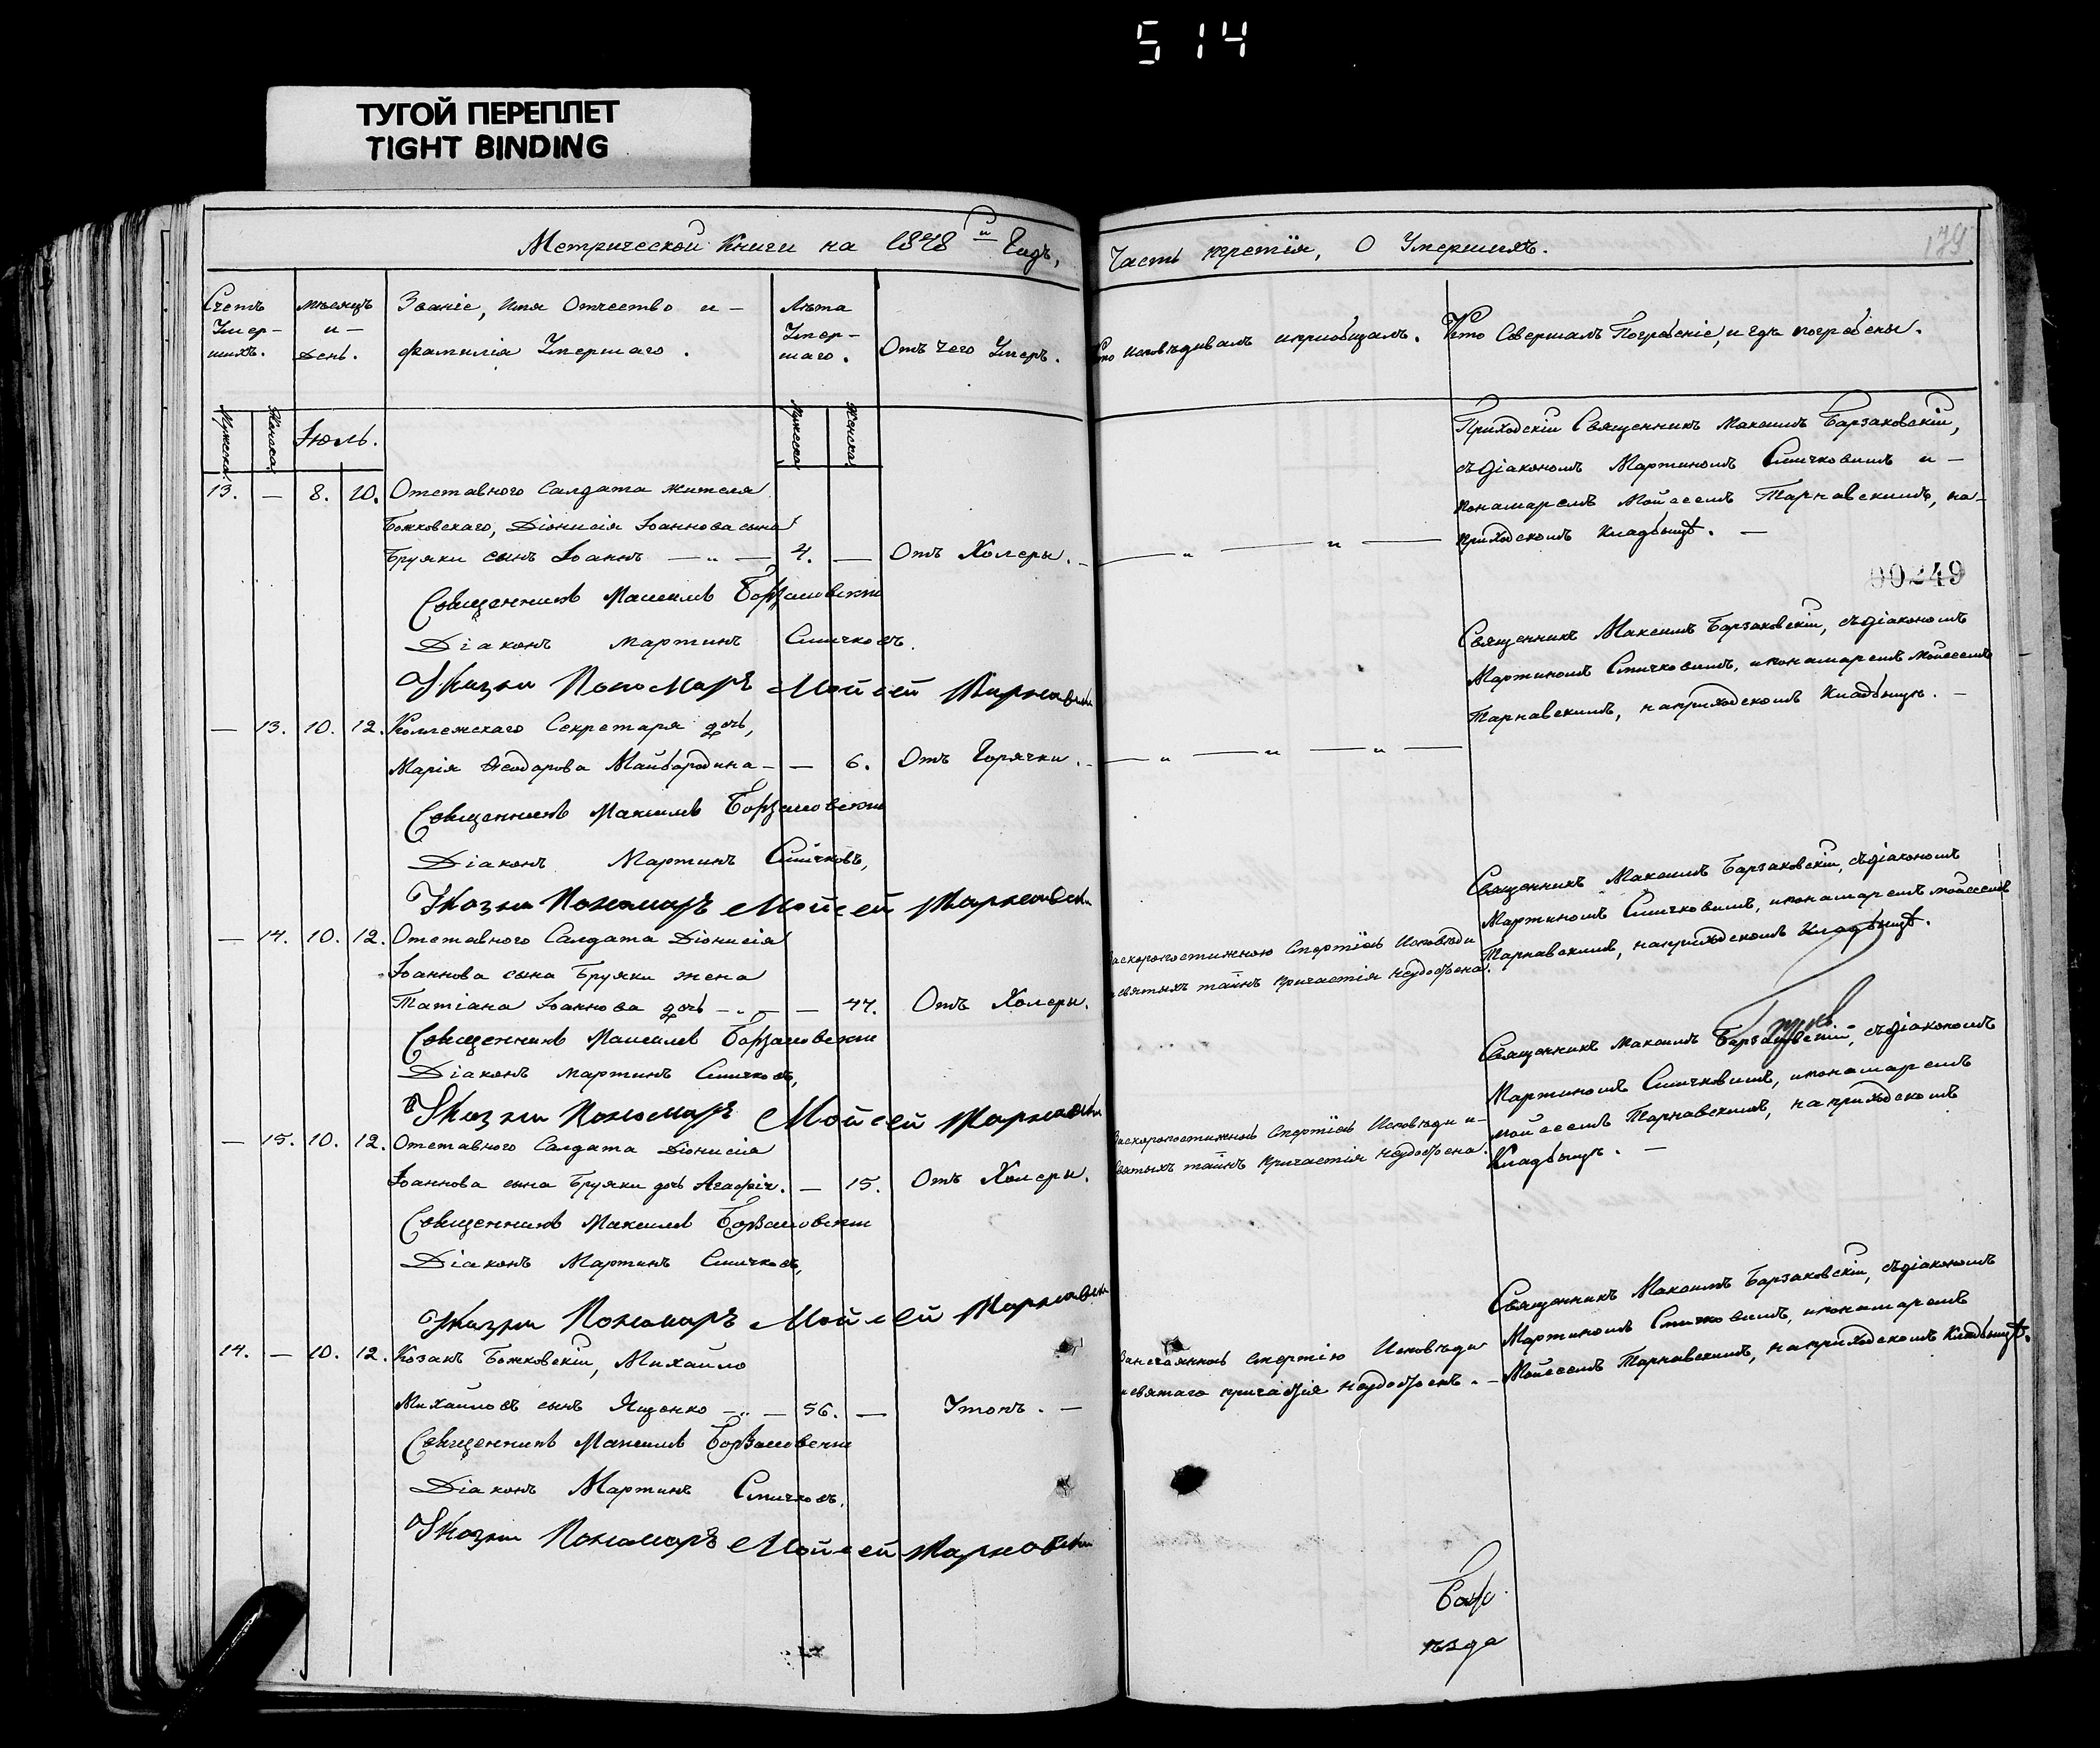 514
ТУГОЙ ПЕРЕПЛЕТ
TIGHT BINDING
Метрической Книги на 1848 й Годъ,
Часть третїя, О Умершихъ.
179
Счетъ
Умер-
шихъ.
мѣсяцъ
и -
день.
Званіе, имя Отчество и -
фамилія Умершаго.
Лѣта
Умер-
шаго.
Отъ чего Умеръ.
Кто исповѣдивалъ и приобщалъ.
Кто Совершалъ Погребеніе, и гдѣ погребены.
Мужска
Женска
Іюль.
Мужеска
Женска
13. — 8. 10. Отставного Салдата жителя
Божковскаго, Діонисія Іоаннова сына
Бруяки сынъ Іоаннъ — „ — 4. — Отъ Холеры.
Приходскій Священникъ Максимъ Барзаковскій,
съ діакономъ Мартиномъ Смичковимъ и -
понамаремъ Мойсеемъ Тарнавскимъ, на-
приходскомъ Кладбищѣ. —
00249
Священникъ Максимъ Борзаковскій
Діаконъ Мартинъ Смичковъ.
Указни Пономарь Мойсей Тарнавски
— 13. 10. 12. Коллежскаго Секретаря дочь,
Марія Ѳеодорова Майбородина - — 6. Отъ Горячки.
Священникъ Максимъ Барзаковскій, съ діакономъ
Мартиномъ Смичковимъ, и понамаремъ Мойсеемъ
Тарнавскимъ, на приходскомъ Кладбищѣ. —
Священникъ Максимъ Борзаковскій
Діаконъ Мартинъ Смичковъ,
Указни Пономарь Мойсей Тарнавски
— 14. 10. 12. Отставного Салдата Діонисія
Іоаннова сына Бруяки жена
Татіана Іоаннова дочь — „ — — 44. Отъ Холеры.
Заскоропостижною Смертїю Исповѣди
и святыхъ таинъ причастія неудобѣена.
Священникъ Максимъ Барзаковскій, съ діакономъ
Мартиномъ Смичковимъ, и понамаремъ Мойсеемъ
Тарнавскимъ, на приходскомъ Кладбищѣ.
Священникъ Максимъ Борзаковскій
Діаконъ Мартинъ Смичковъ,
Указни Пономарь Мойсей Тарнавски
— 15. 10. 12. Отставного Салдата Діонисія
Іоаннова сына Бруяки дочь Агафія. — 15. Отъ Холеры.
Заскоропостижною Смертїю Исповѣди и -
святыхъ таинъ причастія неудобѣена.
Священникъ Максимъ Барзаковскій, съ діакономъ
Мартиномъ Смичковимъ, и понамаремъ
Мойсеемъ Тарнавскимъ, на приходскомъ
Кладбищѣ. —
Священникъ Максимъ Борзаковскій
Діаконъ Мартинъ Смичковъ,
Указни Пономарь Мойсей Тарнавски
14. — 10. 12. Козакъ Божковскій, Михайло
Михайловъ сынъ Ященко — „ — 56. — Утопъ. —
Занечаянною смертію Исповѣди
и святаго причастія неудобѣенъ. —
Священникъ Максимъ Барзаковскій, съ діакономъ
Мартиномъ Смичковимъ, и понамаремъ
Мойсеемъ Тарнавскимъ, на приходскомъ Кладбищѣ.
Священникъ Максимъ Борзаковскій
Діаконъ Мартинъ Смичковъ.
Указни Пономарь Мойсей Тарнавски
ѣзда